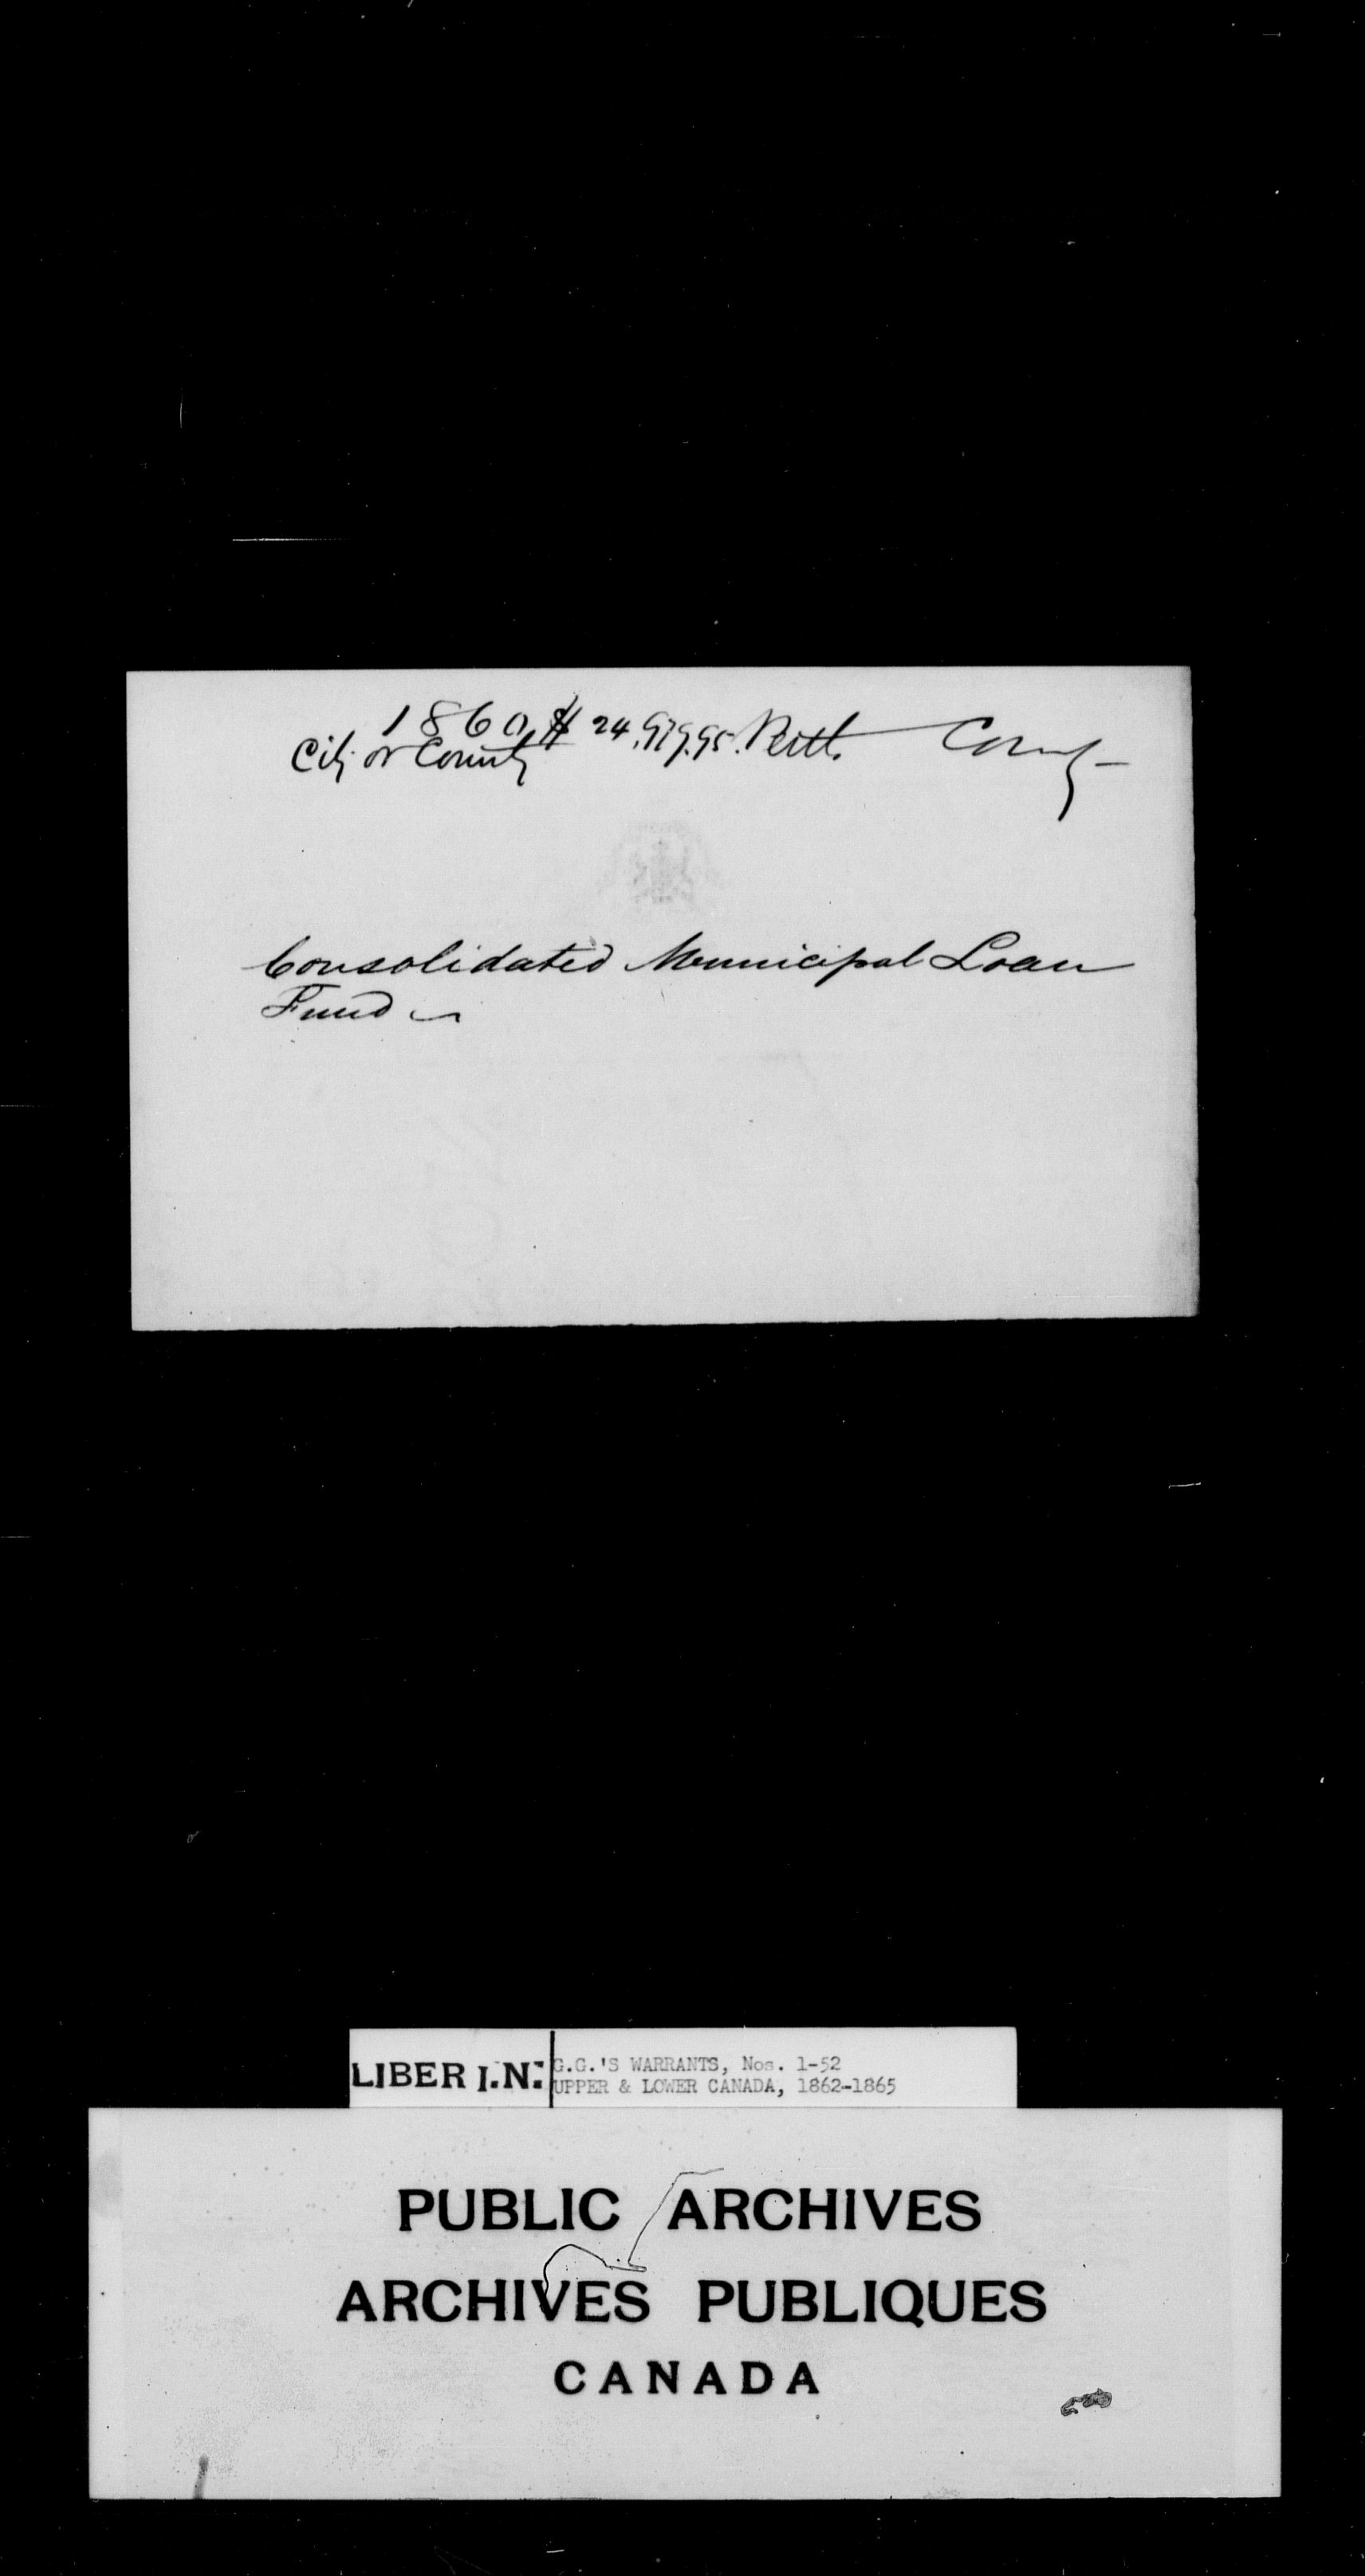 1860 $ 24,979.95. Perth County
City or County
Consolidated Municipal Loan
Fund
LIBER I.N:
G.G.'S WARRANTS, Nos. 1-52
UPPER & LOWER CANADA, 1862-1865
PUBLIC ARCHIVES
ARCHIVES PUBLIQUES
CANADA